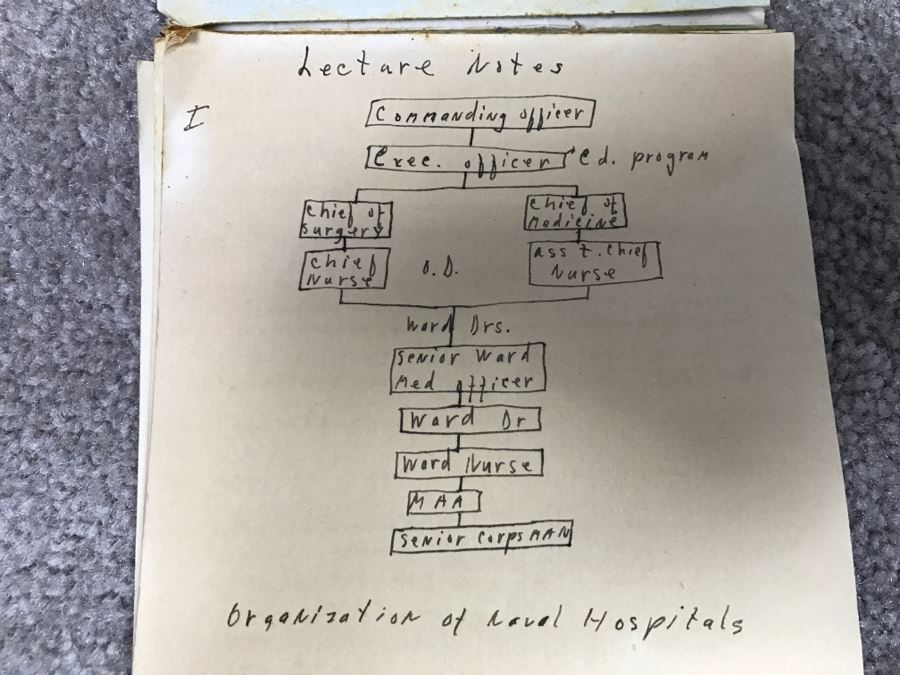 Lecture Notes
I
Commanding officer
Exec. officer
Ed. program
Chief of
Surgery
Chief of
Medicine
Chief
Nurse
O.D.
Ass't. Chief
Nurse
Ward Drs.
Senior Ward
Med officer
Ward Dr
Ward Nurse
MAA
Senior Corpsman
Organization of Naval Hospitals